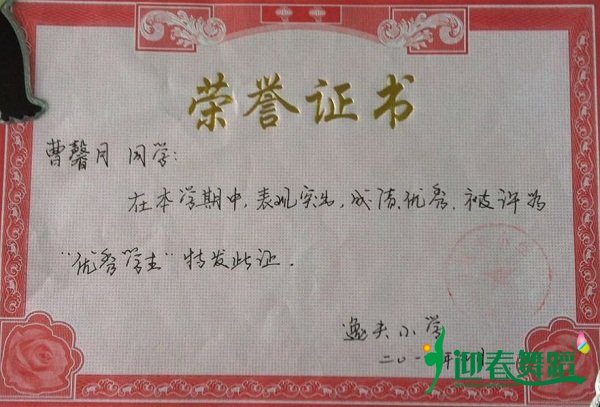 荣誉证书
曹馨月 同学:
在本学期中,表现突出,成绩优秀,被评为
"优秀学生"特发此证.
逸夫小学
二〇一
迎春舞蹈